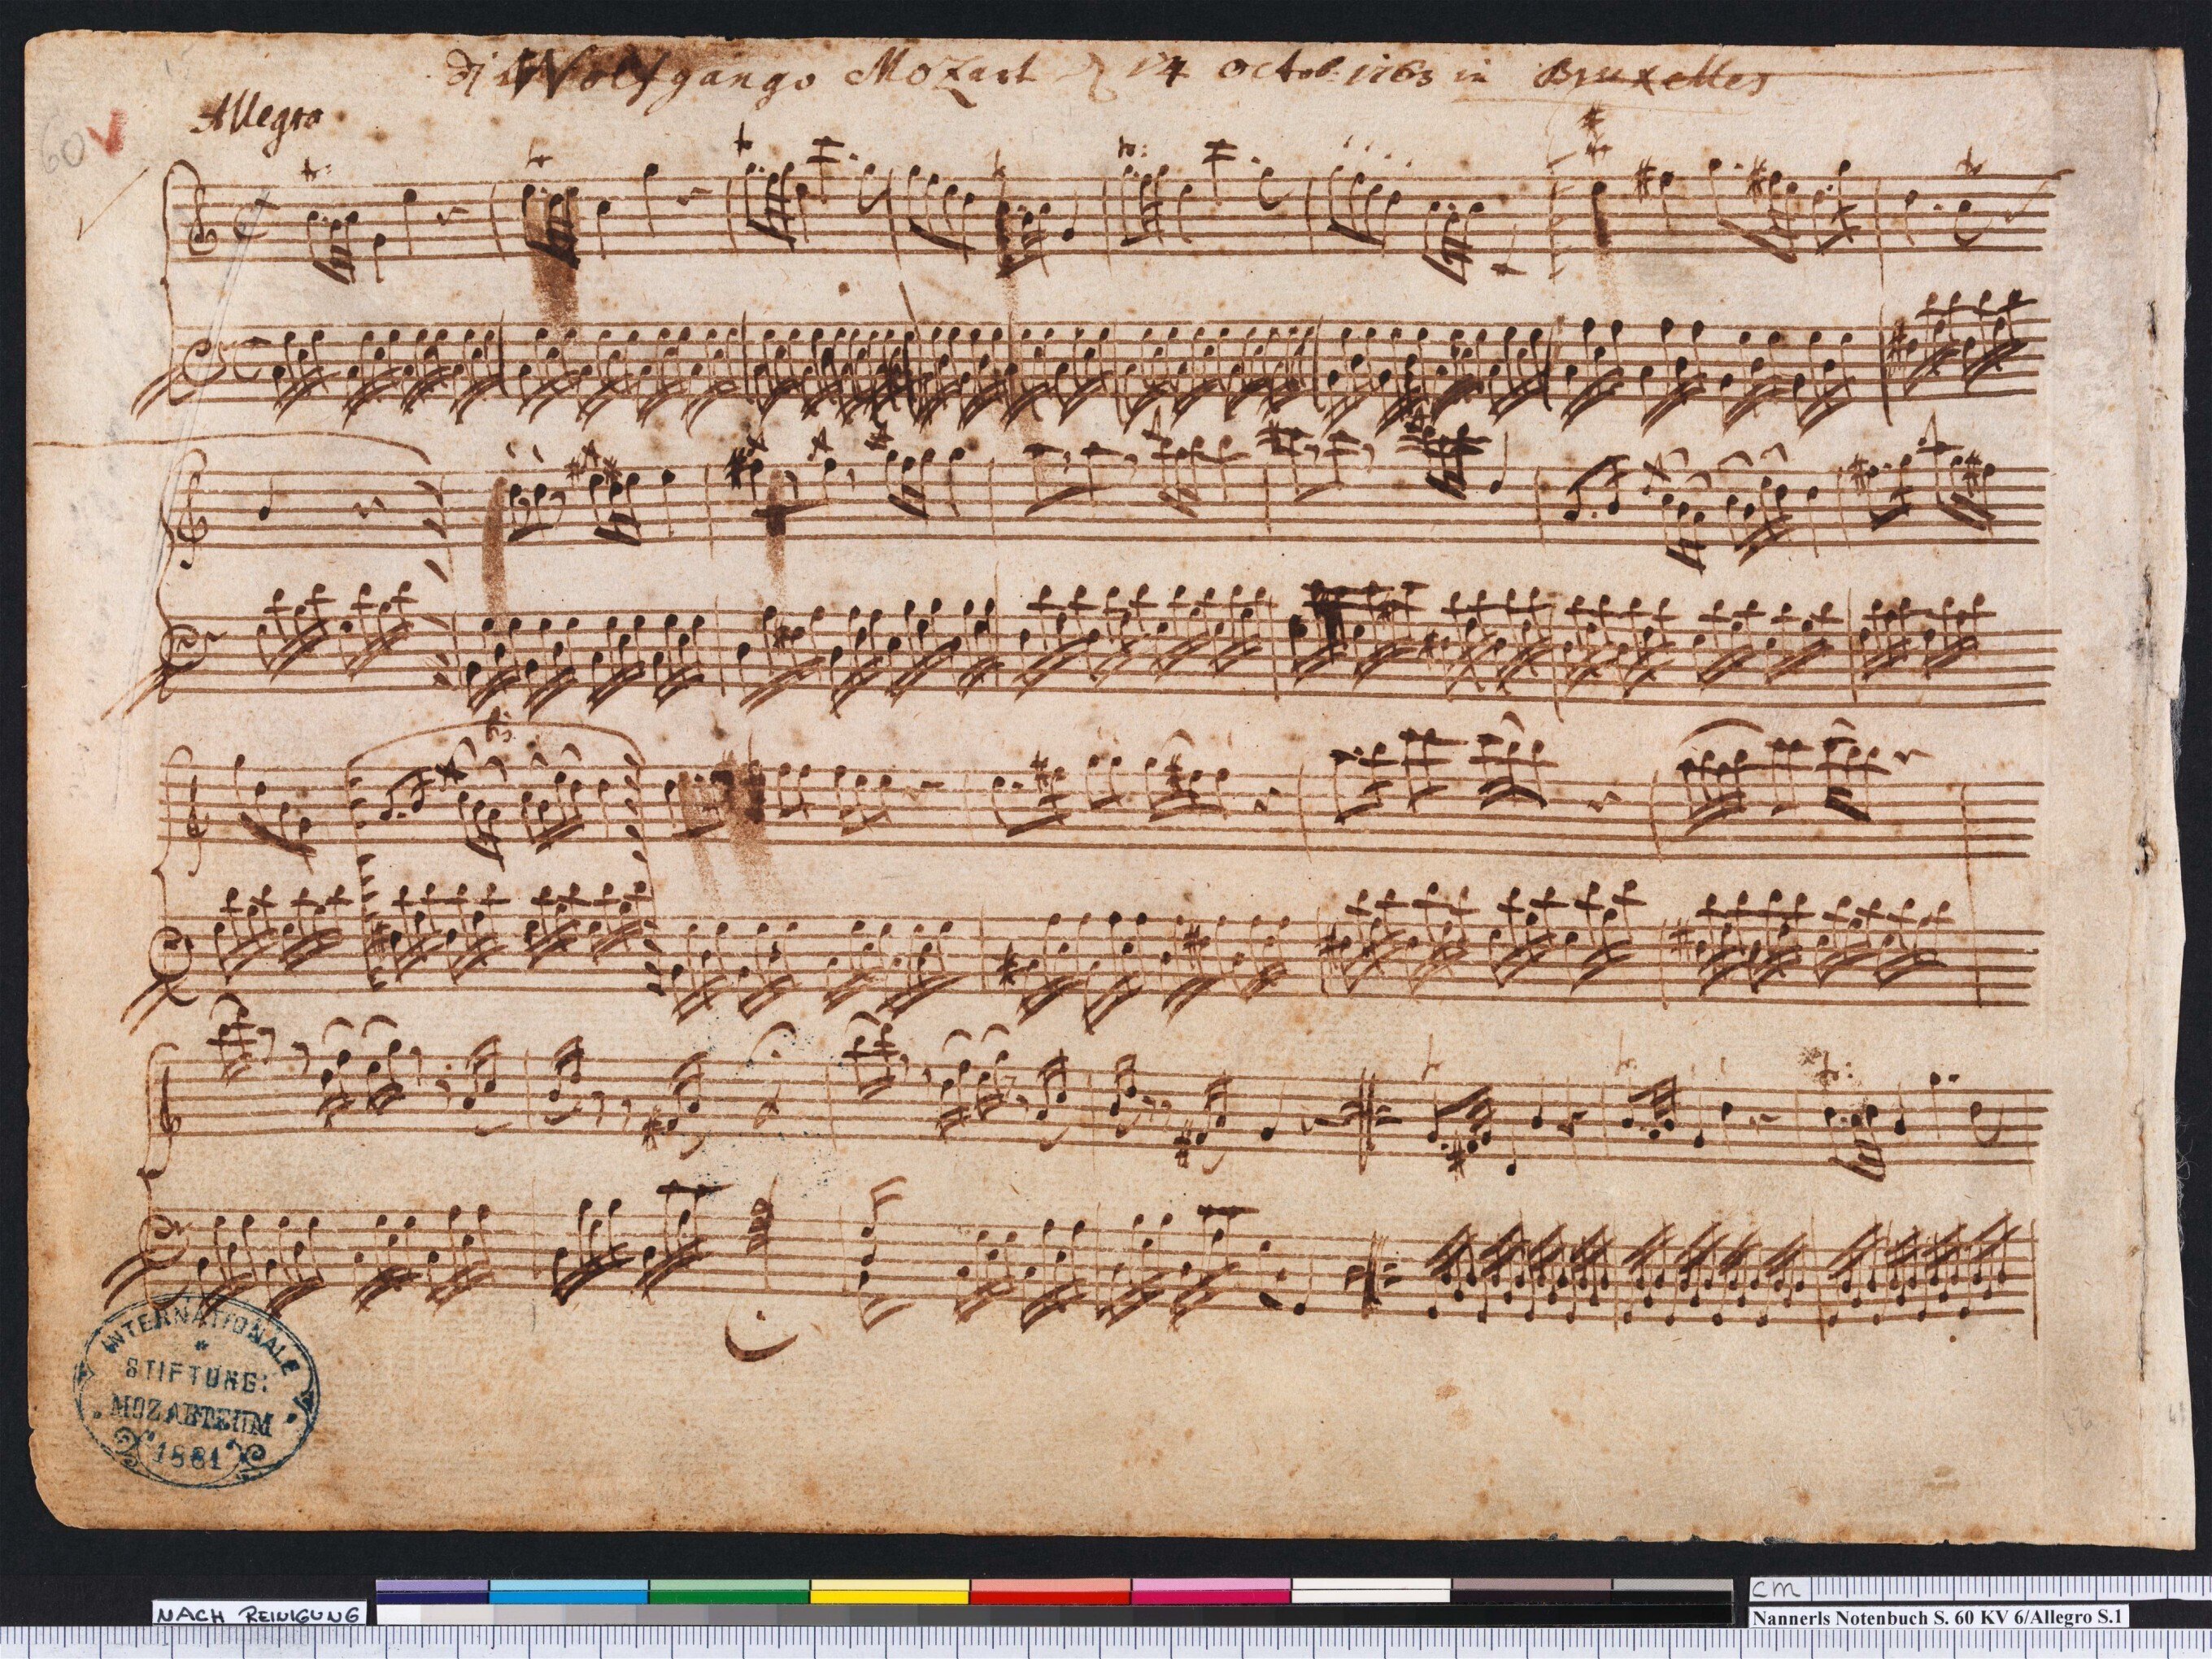 di Wolfgango Mozart d 14 octob: 1763 in Bruxelles
Allegro
60
INTERNATIONALE
STIFTUNG:
MOZARTEUM
1881
NACH REINIGUNG
cm
Nannerls Notenbuch S. 60 KV 6/Allegro S.1